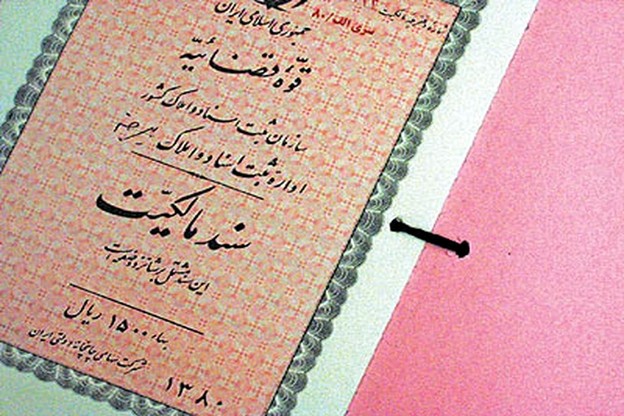 جمهوری اسلامی ایران
سری الف/۸۰
قوّهٔ قضائیّه
سازمان ثبت اسناد و املاک کشور
اداره ثبت اسناد و املاک
سند مالکیّت
این سند مشتمل بر شانزده صفحه است
بهاء ۱۵۰۰ ریال
شرکت سهامی چاپخانه دولتی ایران
۱۳۸۰